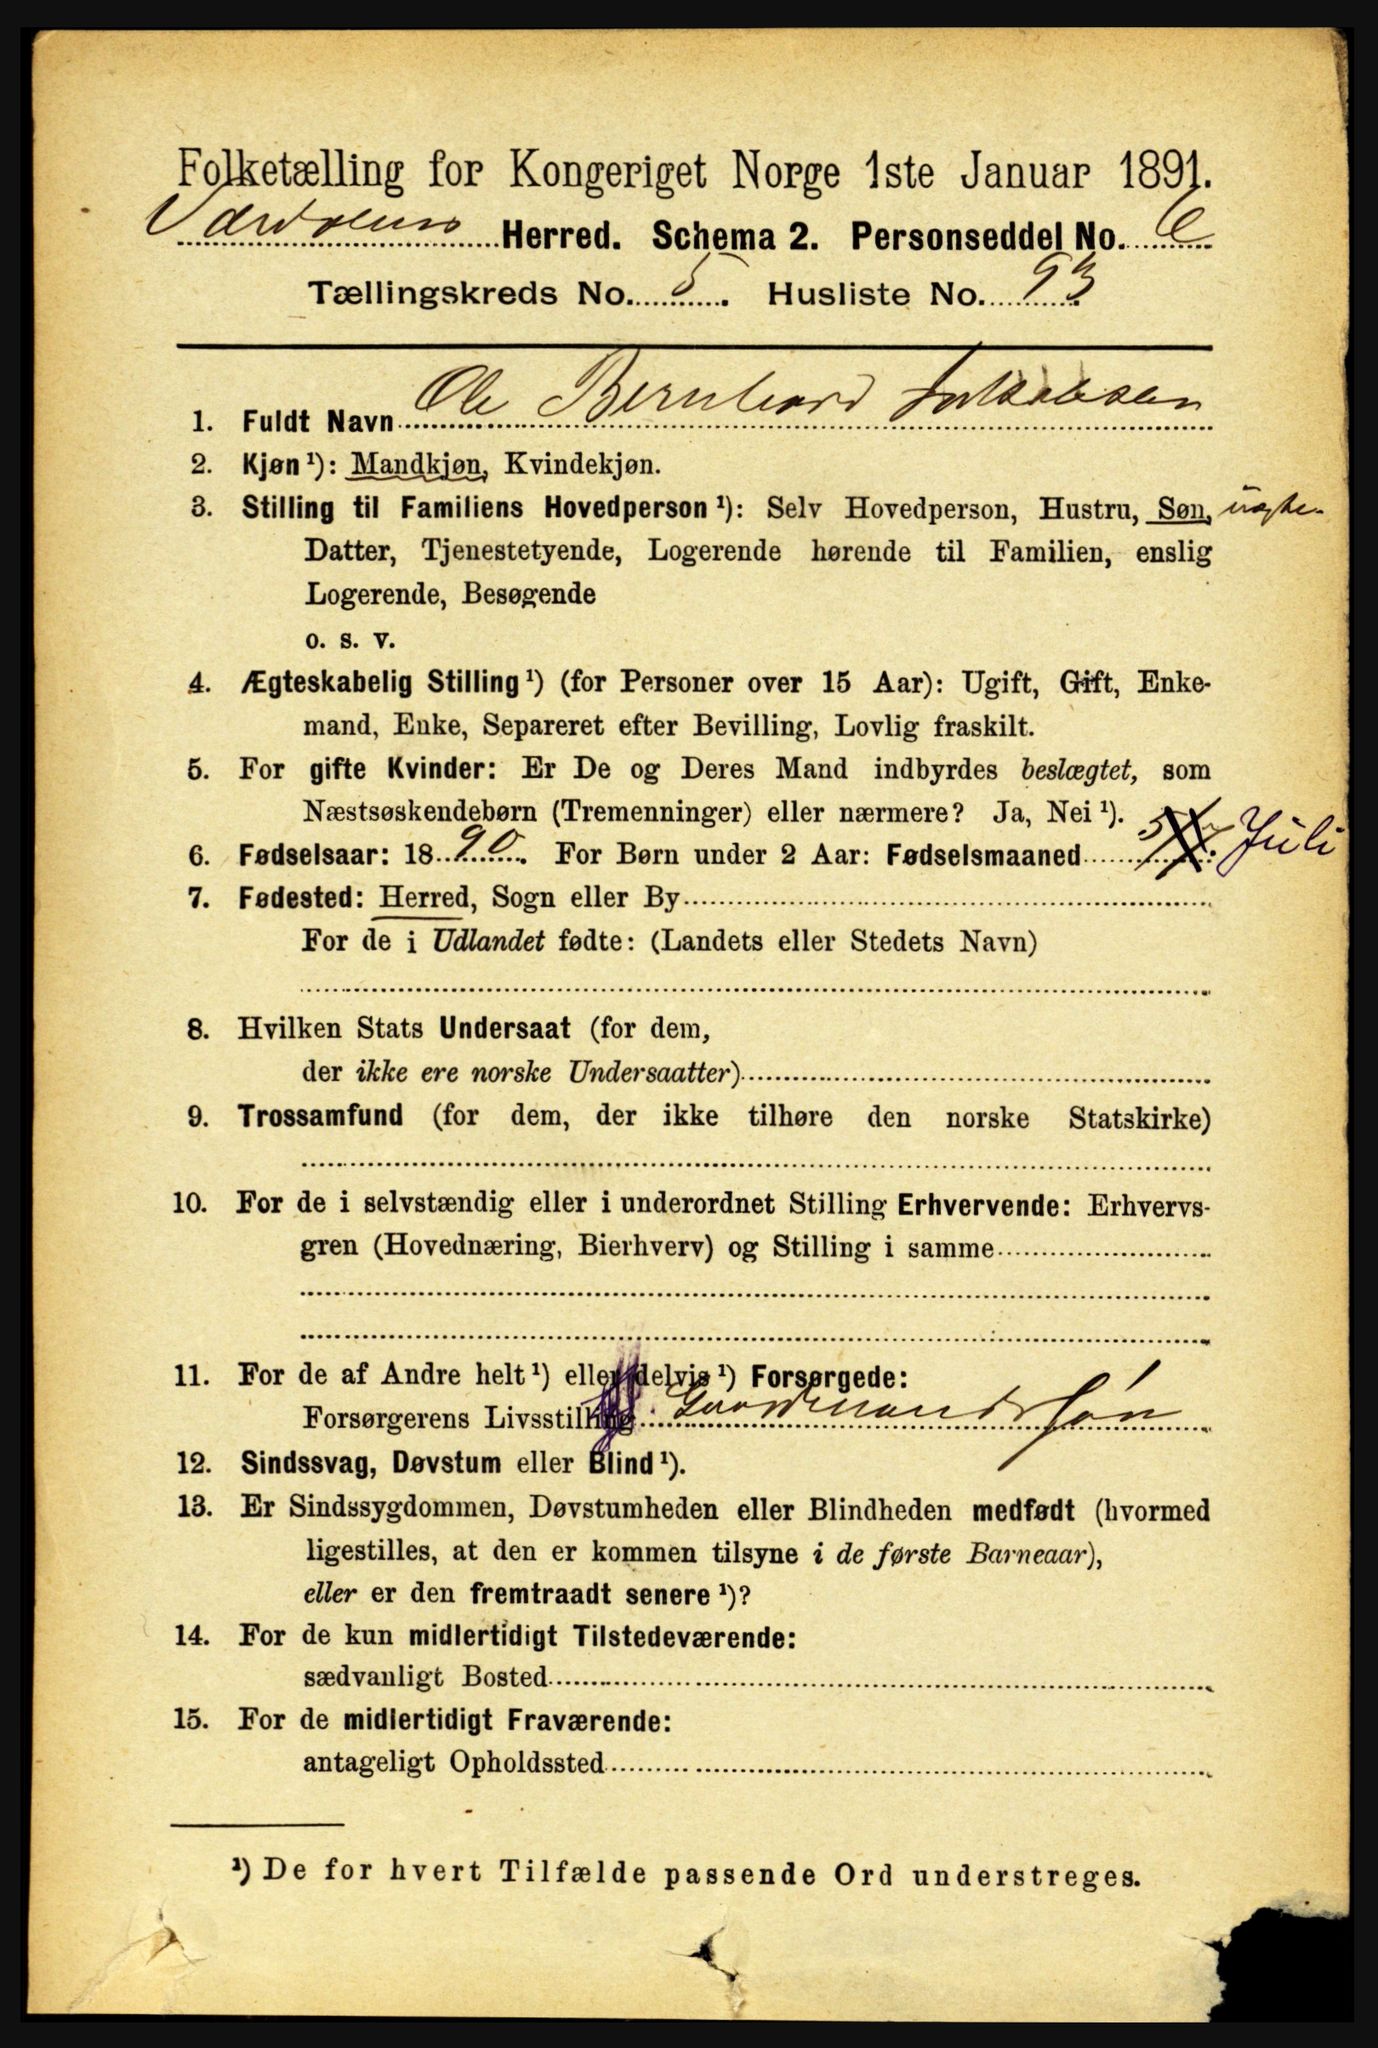 Folketælling for Kongeriget Norge 1ste Januar 1891.
Værdalens Herred. Schema 2. Personseddel No. 6
Tællingskreds No. 5. Husliste No. 93
1. Fuldt Navn Ole Bernhard Jakobsen
2. Kjøn ¹): Mandkjøn, Kvindekjøn.
3. Stilling til Familiens Hovedperson ¹): Selv Hovedperson, Hustru, Søn, uægte.
Datter, Tjenestetyende, Logerende hørende til Familien, enslig
Logerende, Besøgende
o. s. v.
4. Ægteskabelig Stilling ¹) (for Personer over 15 Aar): Ugift, Gift, Enke-
mand, Enke, Separeret efter Bevilling, Lovlig fraskilt.
5. For gifte Kvinder: Er De og Deres Mand indbyrdes beslægtet, som
Næstsøskendebørn (Tremenninger) eller nærmere? Ja, Nei ¹).
6. Fødselsaar: 1890. For Børn under 2 Aar: Fødselsmaaned Juli
7. Fødested: Herred, Sogn eller By
For de i Udlandet fødte: (Landets eller Stedets Navn)
8. Hvilken Stats Undersaat (for dem,
der ikke ere norske Undersaatter)
9. Trossamfund (for dem, der ikke tilhøre den norske Statskirke)
10. For de i selvstændig eller i underordnet Stilling Erhvervende: Erhvervs-
gren (Hovednæring, Bierhverv) og Stilling i samme
11. For de af Andre helt ¹) eller delvis ¹) Forsørgede:
Forsørgerens Livsstilling: Gaardmandssøn
12. Sindssvag, Døvstum eller Blind ¹).
13. Er Sindssygdommen, Døvstumheden eller Blindheden medfødt (hvormed
ligestilles, at den er kommen tilsyne i de første Barneaar),
eller er den fremtraadt senere ¹)?
14. For de kun midlertidigt Tilstedeværende:
sædvanligt Bosted
15. For de midlertidigt Fraværende:
antageligt Opholdssted
¹) De for hvert Tilfælde passende Ord understreges.